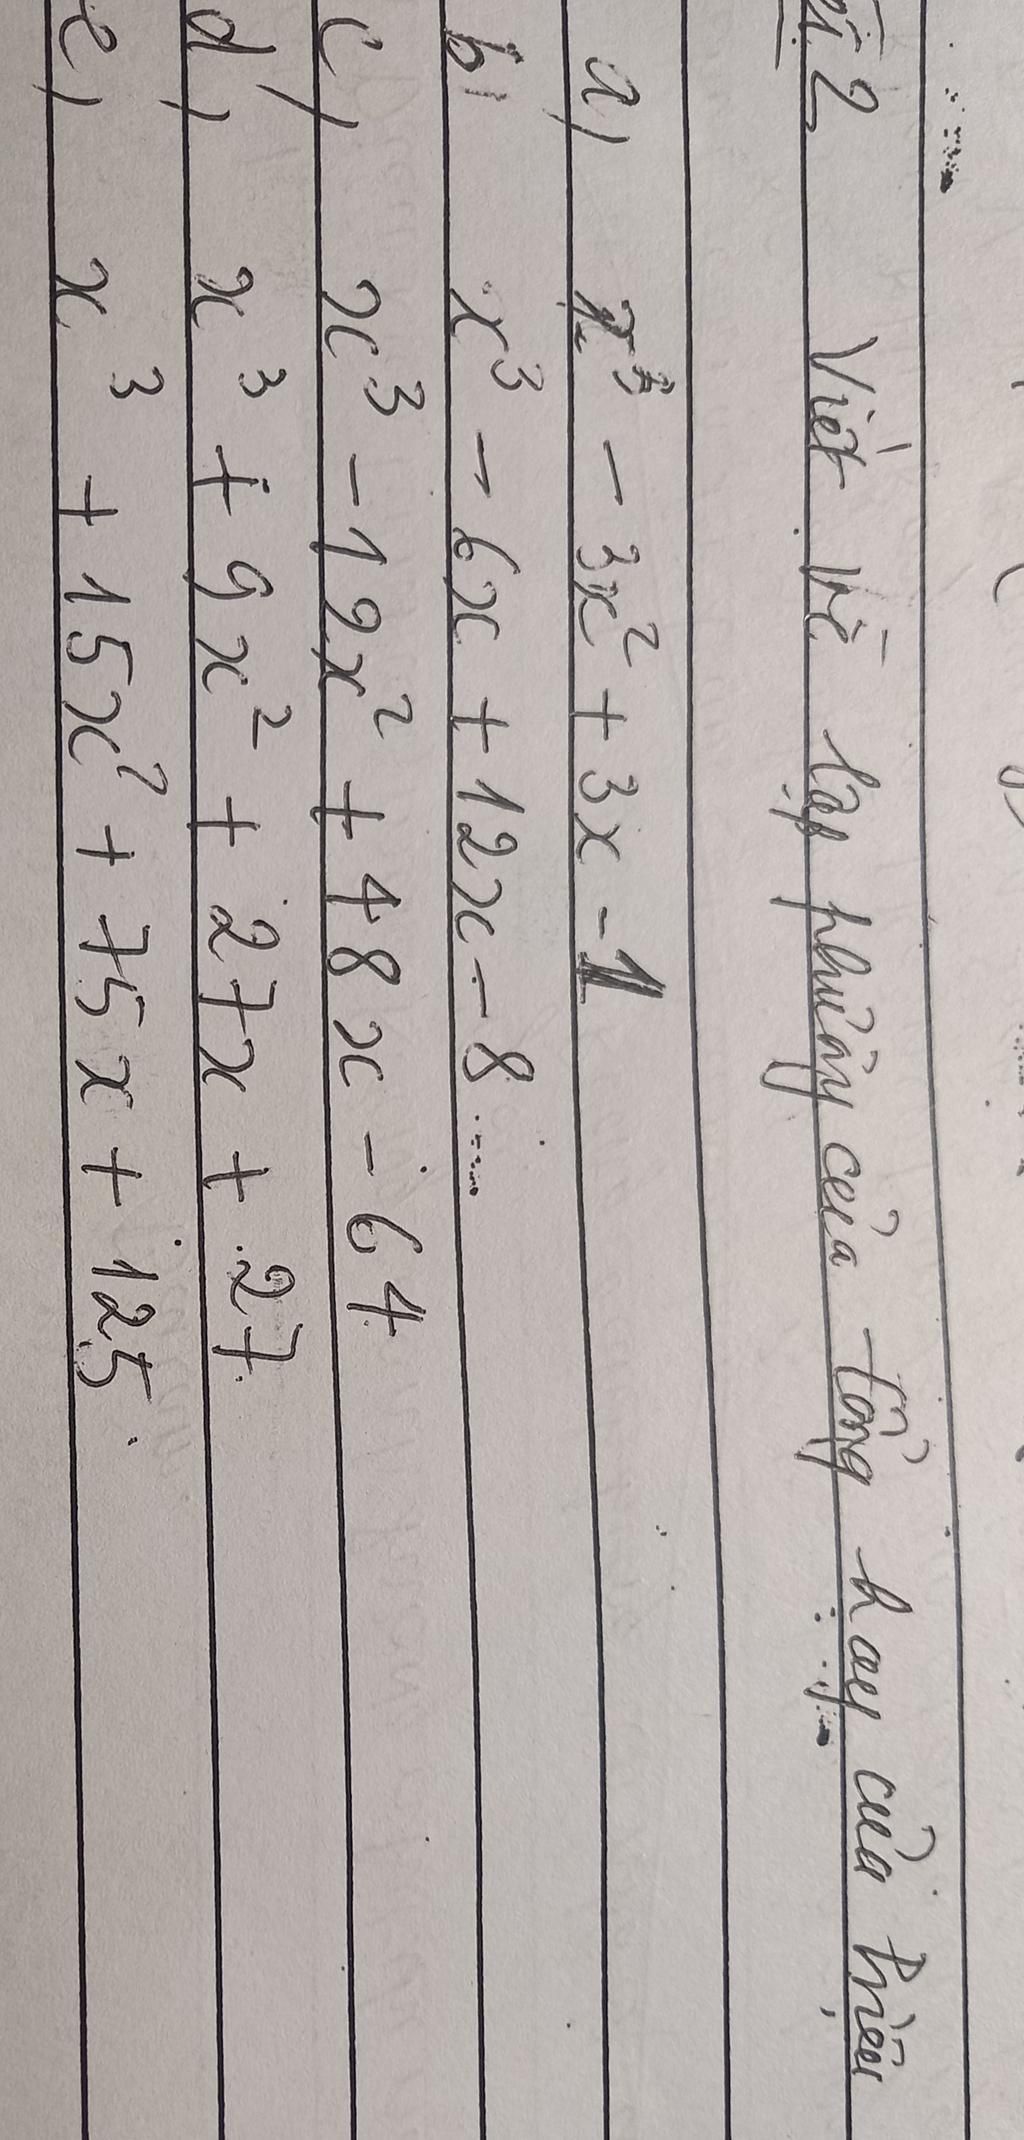 2 Viết về lập phương của tổng hay của hiệu
a) x³ - 3x² + 3x - 1
b) x³ - 6x + 12x - 8
c) x³ - 12x² + 48x - 64
d) x³ + 9x² + 27x + 27
e) x³ + 15x² + 75x + 125